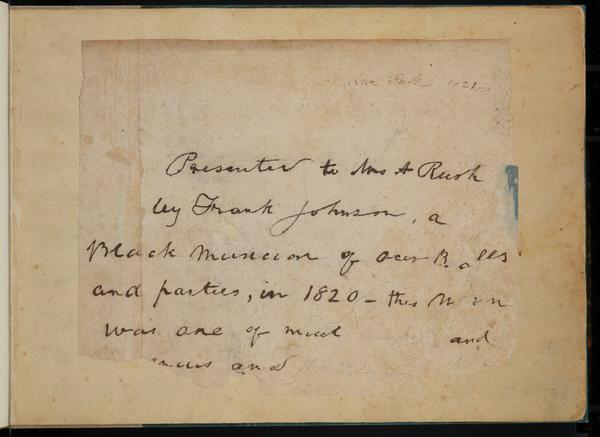 Presented to Mrs A Rush
by Frank Johnson, a
Black Musician of our Balls
and parties, in 1820 - this Man
was one of much and
and